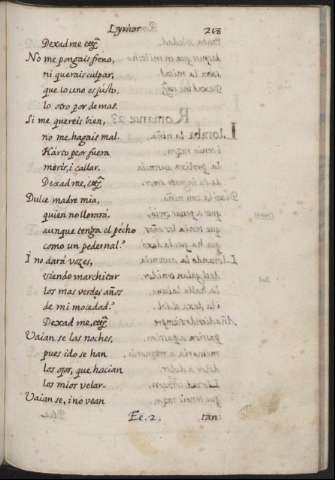 Lyricos 268
Dexad me, etç.
No me pongais freno,
ni querais culpar,
que lo uno es justo,
lo otro por de mas.
Si me quereis bien,
no me hagais mal.
Harto peor fuera
morir, i callar.
Dexad me, etç.
Dulce madre mia,
quien no llorara,
aunque tenga el pecho
como un pedernal?
I no dará vozes,
viendo marchitar
los mas verdes años
de mi mocedad?
Dexad me, etç.
Vaian se las noches,
pues ido se han
los ojos, que hacian
los mios velar.
Vaian se, i no vean
Ee. 2. tan